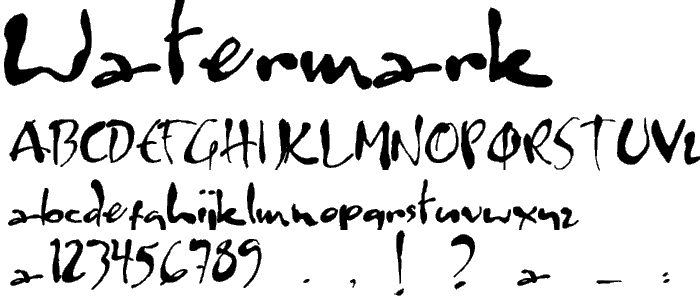 Watermark
ABCDEFGHIJKLMNOPQRSTUV
abcdefghijklmnopqrstuvwxyz
a123456789 . , ! ? a _ :